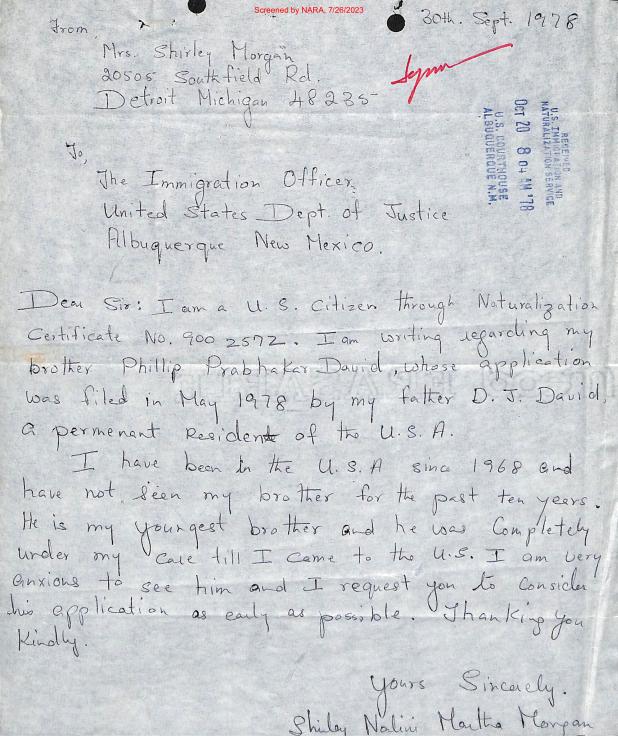 Screened by NARA, 7/26/2023
30th. Sept. 1978
From,
Mrs. Shirley Morgan
20505 Southfield Rd.
Detroit Michigan 48235
RECEIVED
U.S. IMMIGRATION AND
NATURALIZATION SERVICE
OCT 20 8 04 AM '78
U.S. COURTHOUSE
ALBUQUERQUE N.M.
To,
The Immigration Officer,
United States Dept. of Justice
Albuquerque New Mexico.
Dear Sir: I am a U.S. Citizen through Naturalization
Certificate No. 900 2572. I am writing regarding my
brother Phillip Prabhakar David, whose application
was filed in May 1978 by my father D. J. David,
a permenant Resident of the U.S.A.
I have been in the U.S.A since 1968 and
have not seen my brother for the past ten years.
He is my youngest brother and he was Completely
under my care till I came to the U.S. I am very
anxious to see him and I request you to consider
his application as early as possible. Thanking you
Kindly.
Yours Sincerely.
Shirley Nalini Martha Morgan